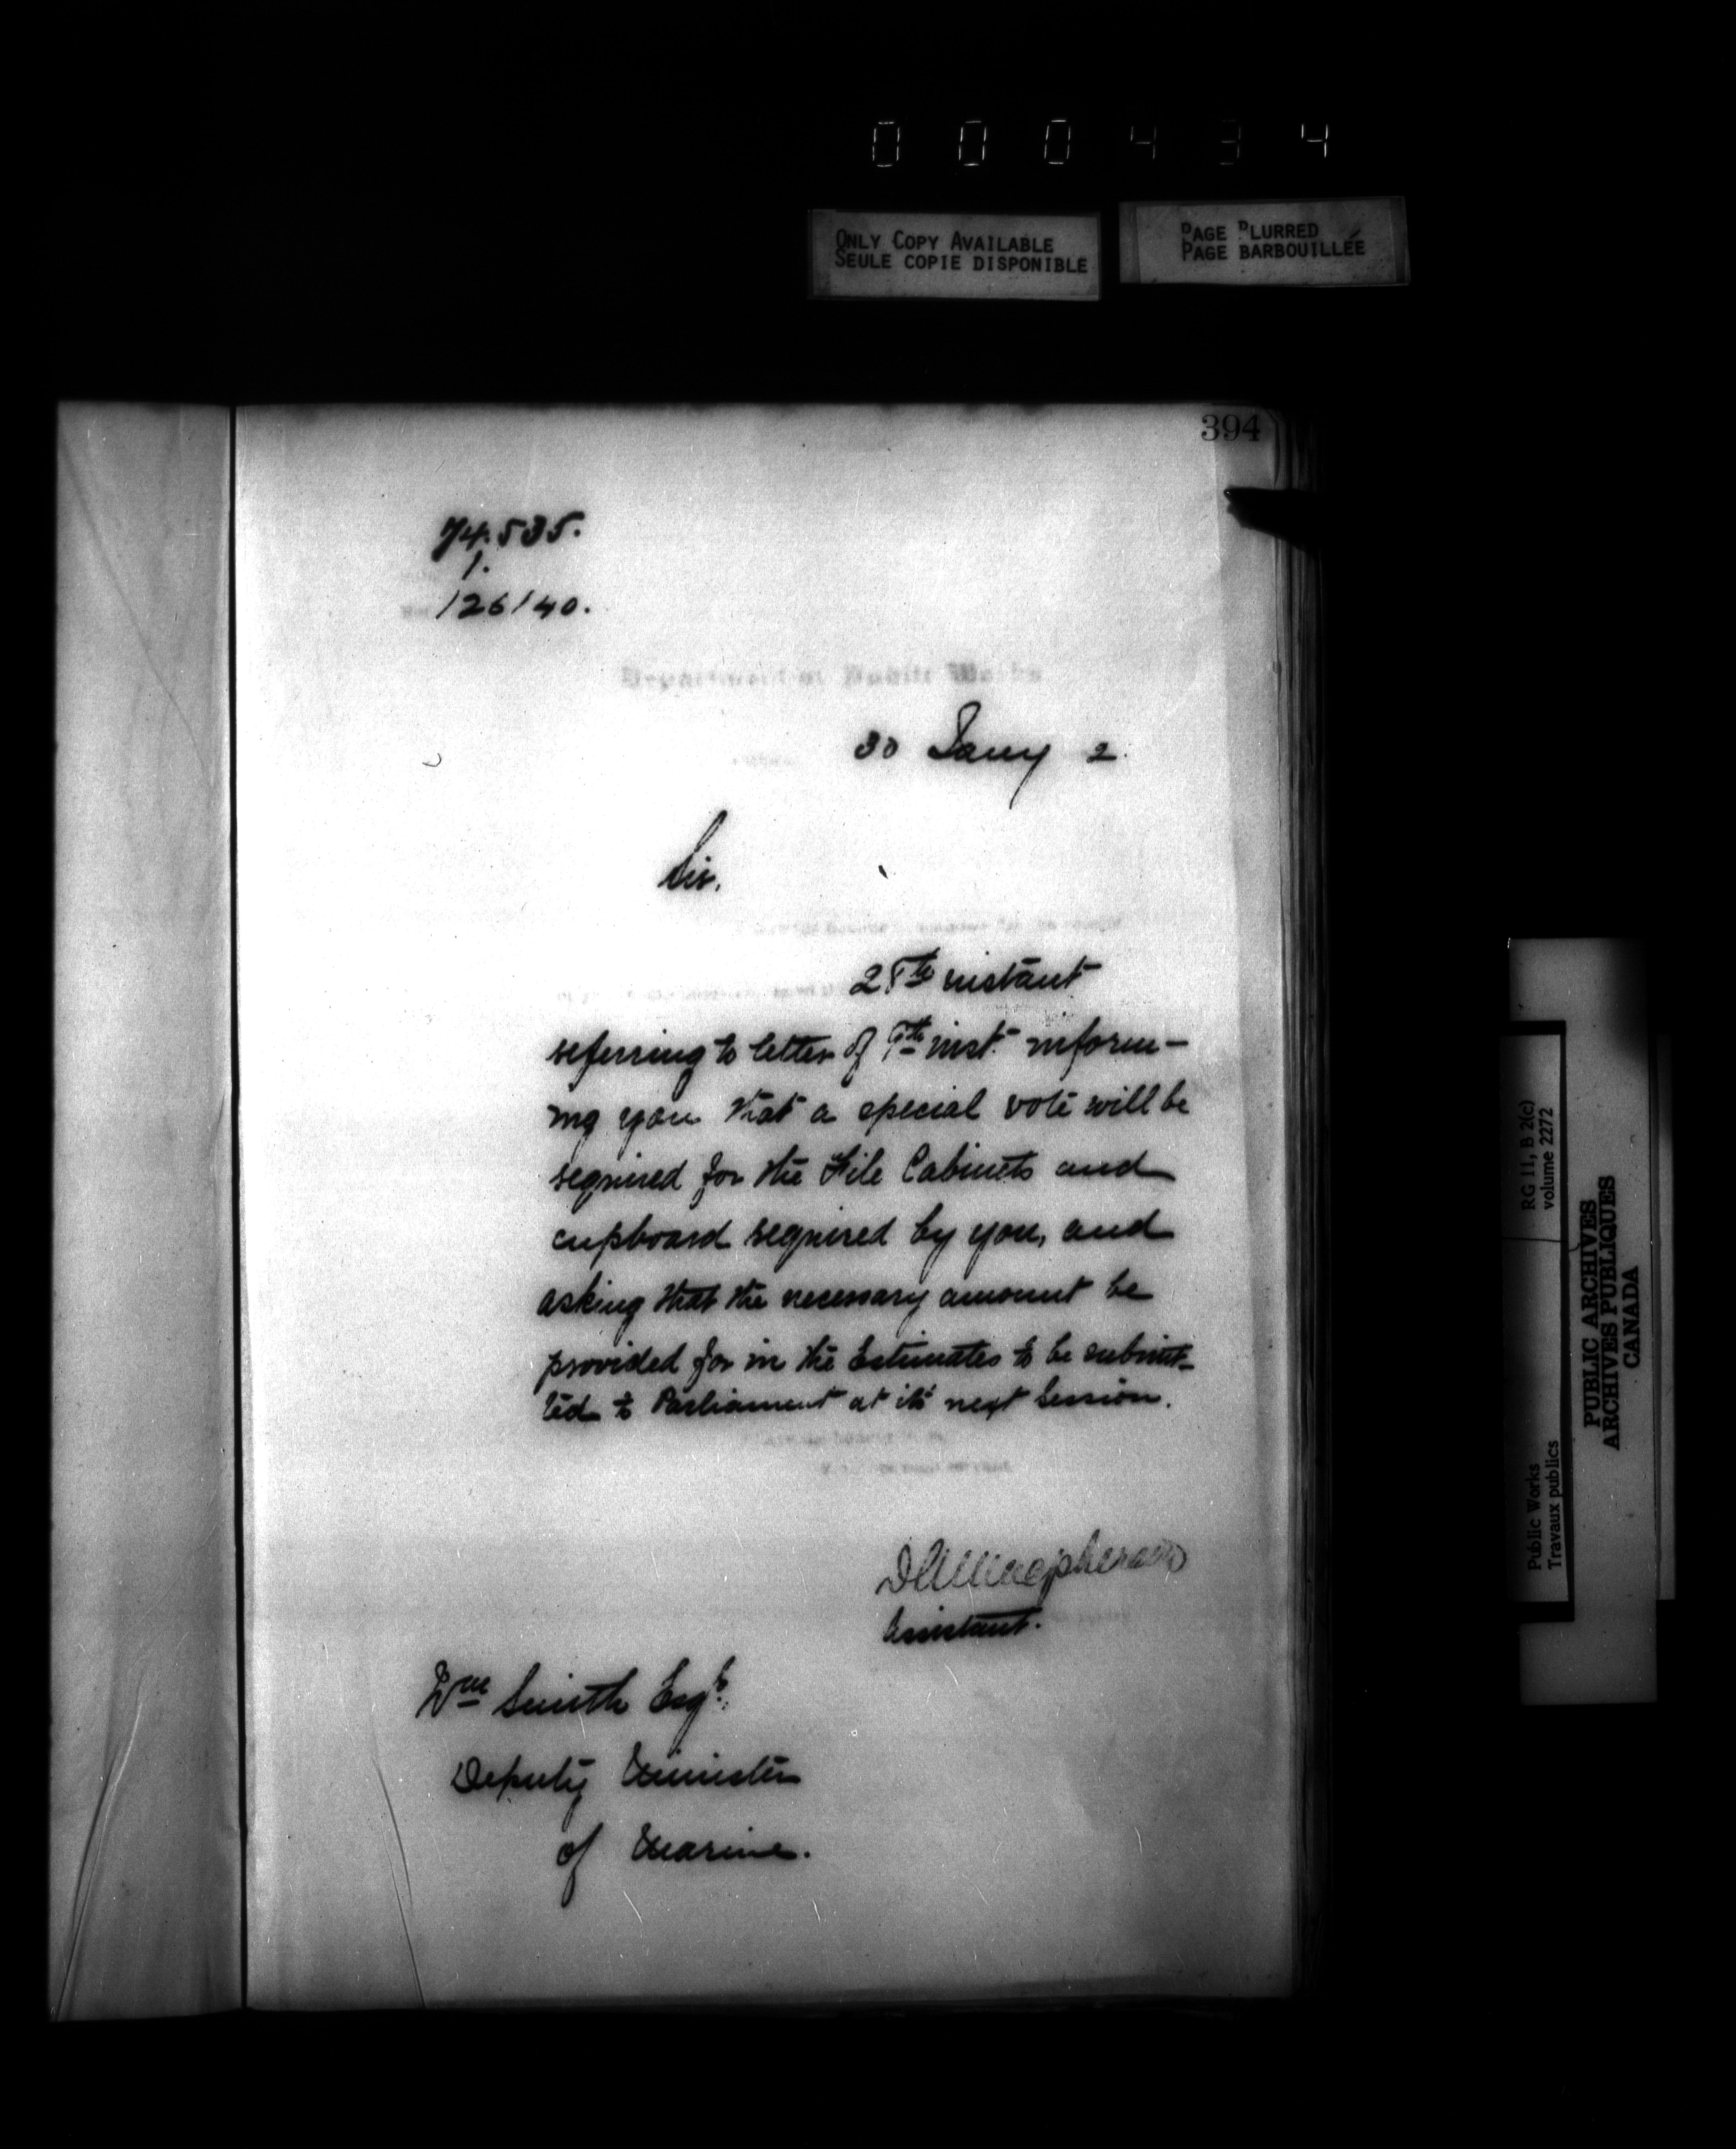 000434
ONLY COPY AVAILABLE
SEULE COPIE DISPONIBLE
PAGE BLURRED
PAGE BARBOUILLÉE
394
74.535.
1.
126140.
Department of Public Works
30 Jany 2.
Sir,
28th instant
referring to letter of 9th inst. inform-
ing you that a special vote will be
required for the File Cabinets and
cupboard required by you, and
asking that the necessary amount be
provided for in the Estimates to be submit-
ted to Parliament at its next Session.
DAMacpherson
Assistant.
Wm Smith Esqr.
Deputy Minister
of Marine.
Public Works
Travaux publics
RG 11, B 2(c)
volume 2272
PUBLIC ARCHIVES
ARCHIVES PUBLIQUES
CANADA